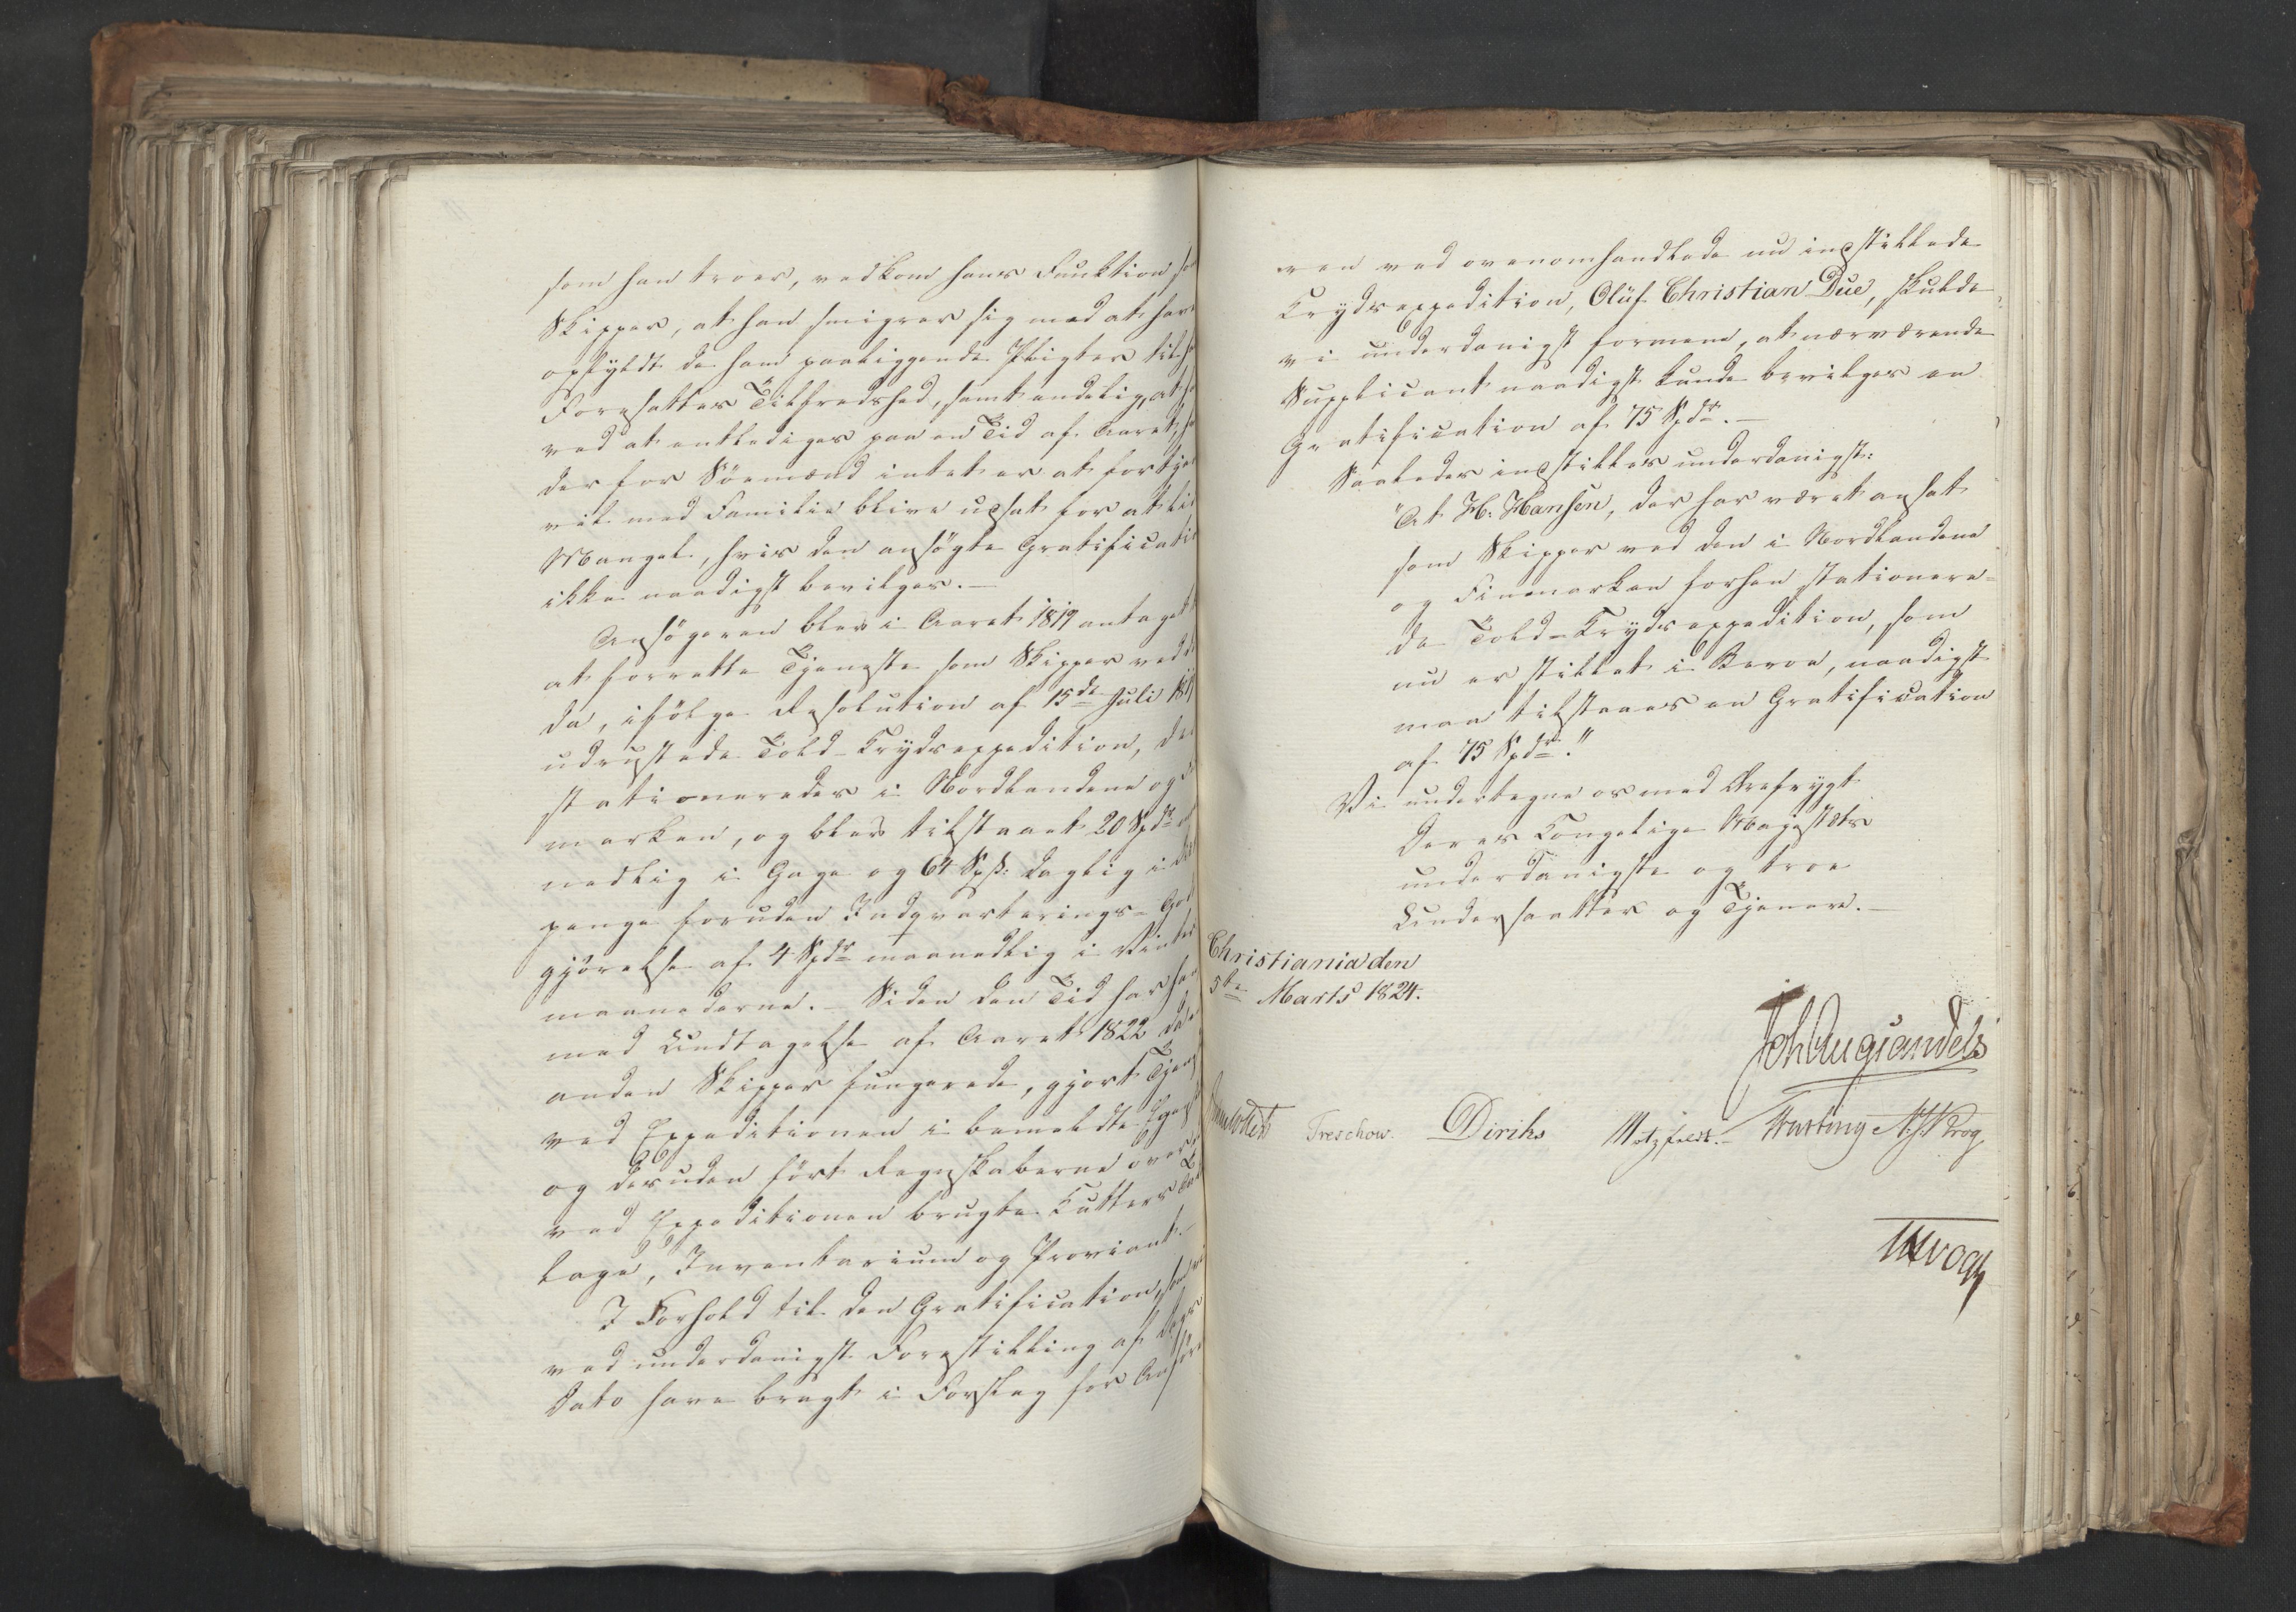 som han troer, vedkom hans Funktion so
Skipper, at han smigrer sig med at have
opfyldt de ham paaliggende Pligter til
Foresattes Tilfredshed, samt endelig, at
ved at entlediges paa en Tid af Aaret,
der for Söemænd intet er at fortje
vil med Familie blive udsat for at li
Mangel, hvis den ansögte Gratificati
ikke naadigst bevilges.—
Ansögeren blev i Aaret 1819 antaget
at forrette Tjeneste som Skipper ved d
da, ifölge Resolution af 15de Juli 181
udrustede Told-Krydsexpedition, de
stationeredes i Nordlandene og
marken, og blev tilstaaet 20 Spdr
nedlig i Gage og 64 Spß: daglig i
penge foruden Indqvarterings-God
gjörelse af 4 Spdr maanedlig i Vinter
maanederne.— Siden den Tid har han
med Undtagelse af Aaret 1822 da
anden Skipper fungerede, gjort Tjen
ved Expeditionen i bemeldte Egens
og desuden fört Regnskaberne over
ved Expeditionen brugte Kutters
lage, Inventarium og Proviant.—
I Forhold til den Gratification, som
ved underdanigst Forestilling af
Dato have bragt i Forslag for Anföre
ren ved ovenomhandlede nu indstillede
Krydsexpedition, Oluf Christian Due, skulde
vi underdanigst formene, at nærværende
Supplicant naadigst kunde bevilges en
Gratification af 75 Spdr.—
Saaledes indstilles underdanigst:
"At H. Hansen, der har været ansat
som Skipper ved den i Nordlandene
og Finmarken forhen stationere-
de Told-Krydsexpedition, som
nu er stillet i Bero, naadigst
maa tilstaaes en Gratification
af 75 Spdr."
Vi undertegne os med Ærefrygt
Deres Kongelige Majestæts
underdanigste og troe
Undersaatter og Tjenere.—
Christiania den
5te Marts 1824.
Joh Aug Sandels
Treschow. Diriks Motzfeldt.— Krog